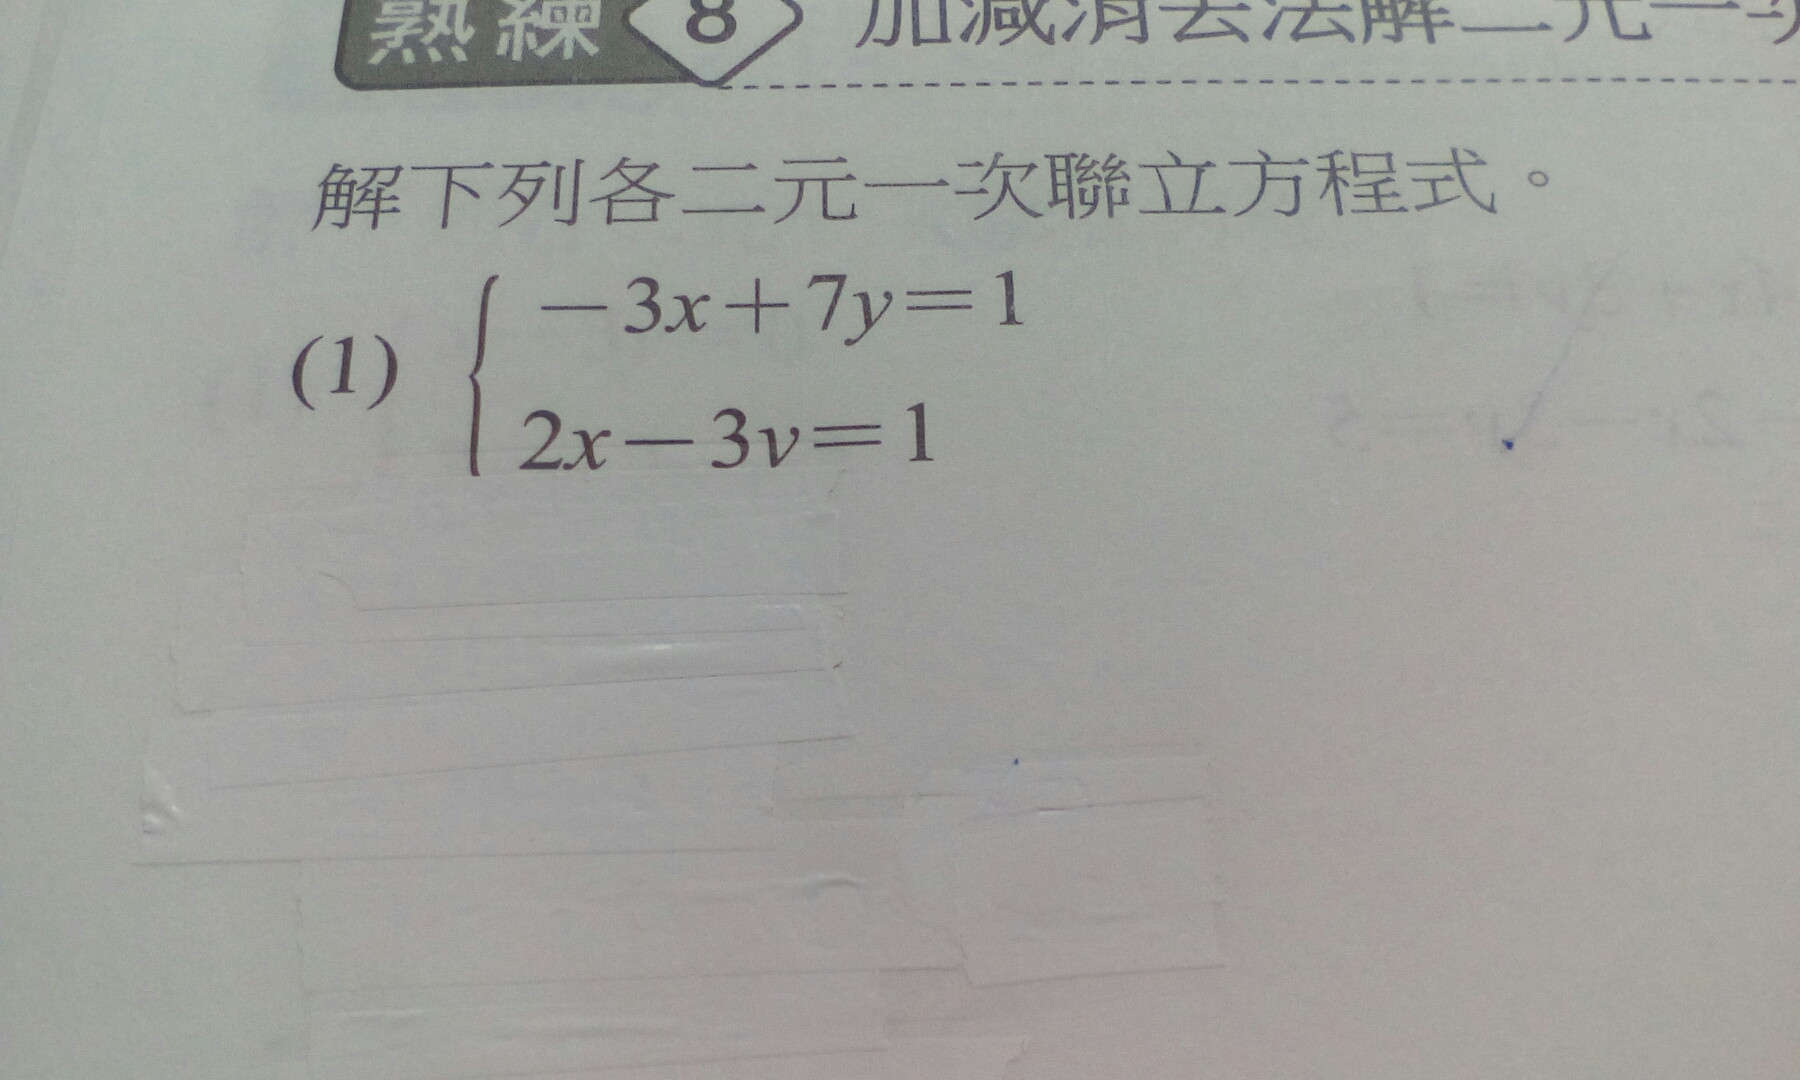 熟練 8 加減消去法解二元一次
解下列各二元一次聯立方程式。
(1) { -3x+7y=1
2x-3y=1